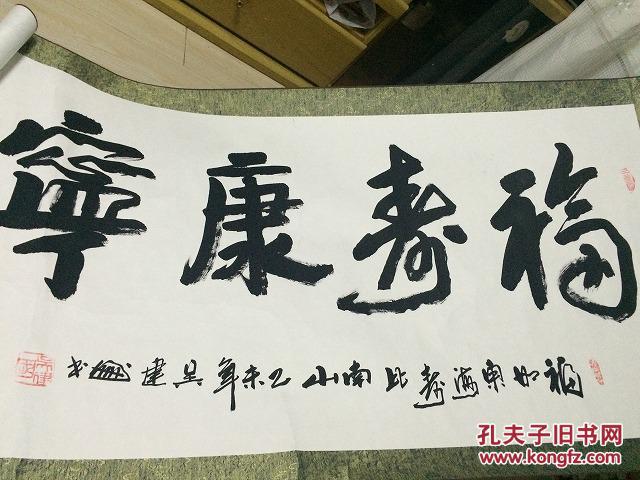 福寿康寧
福如東海寿比南山乙未年吳建書
孔夫子旧书网
www.kongfz.com